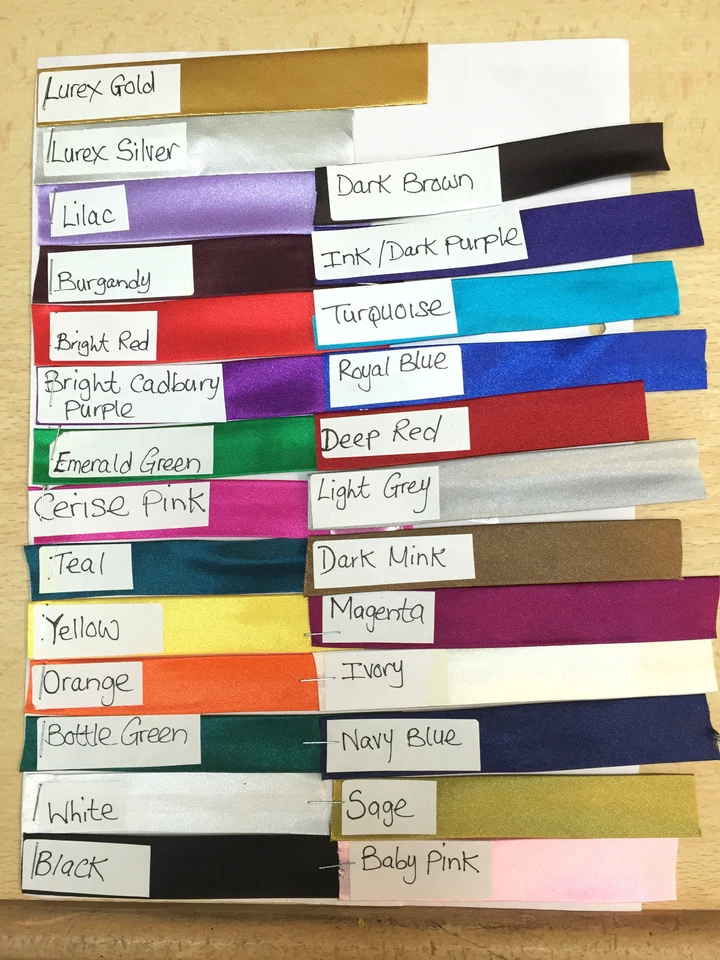 Lurex Gold
Lurex Silver
Lilac
Burgandy
Bright Red
Bright Cadbury
Purple
Emerald Green
Cerise Pink
Teal
Yellow
Orange
Bottle Green
White
Black
Dark Brown
Ink/Dark Purple
Turquoise
Royal Blue
Deep Red
Light Grey
Dark Mink
Magenta
Ivory
Navy Blue
Sage
Baby Pink